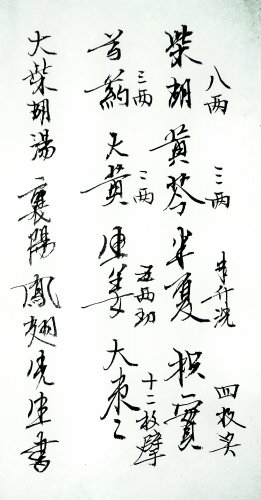 柴胡八两黄芩三两半夏半升洗枳實四枚炙
芍葯三两大黄二两生姜五两切大枣十二枚擘
大柴胡湯 襄陽鳳先生書